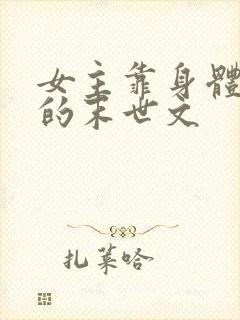 女主靠身體
的末世文
扎莱哈